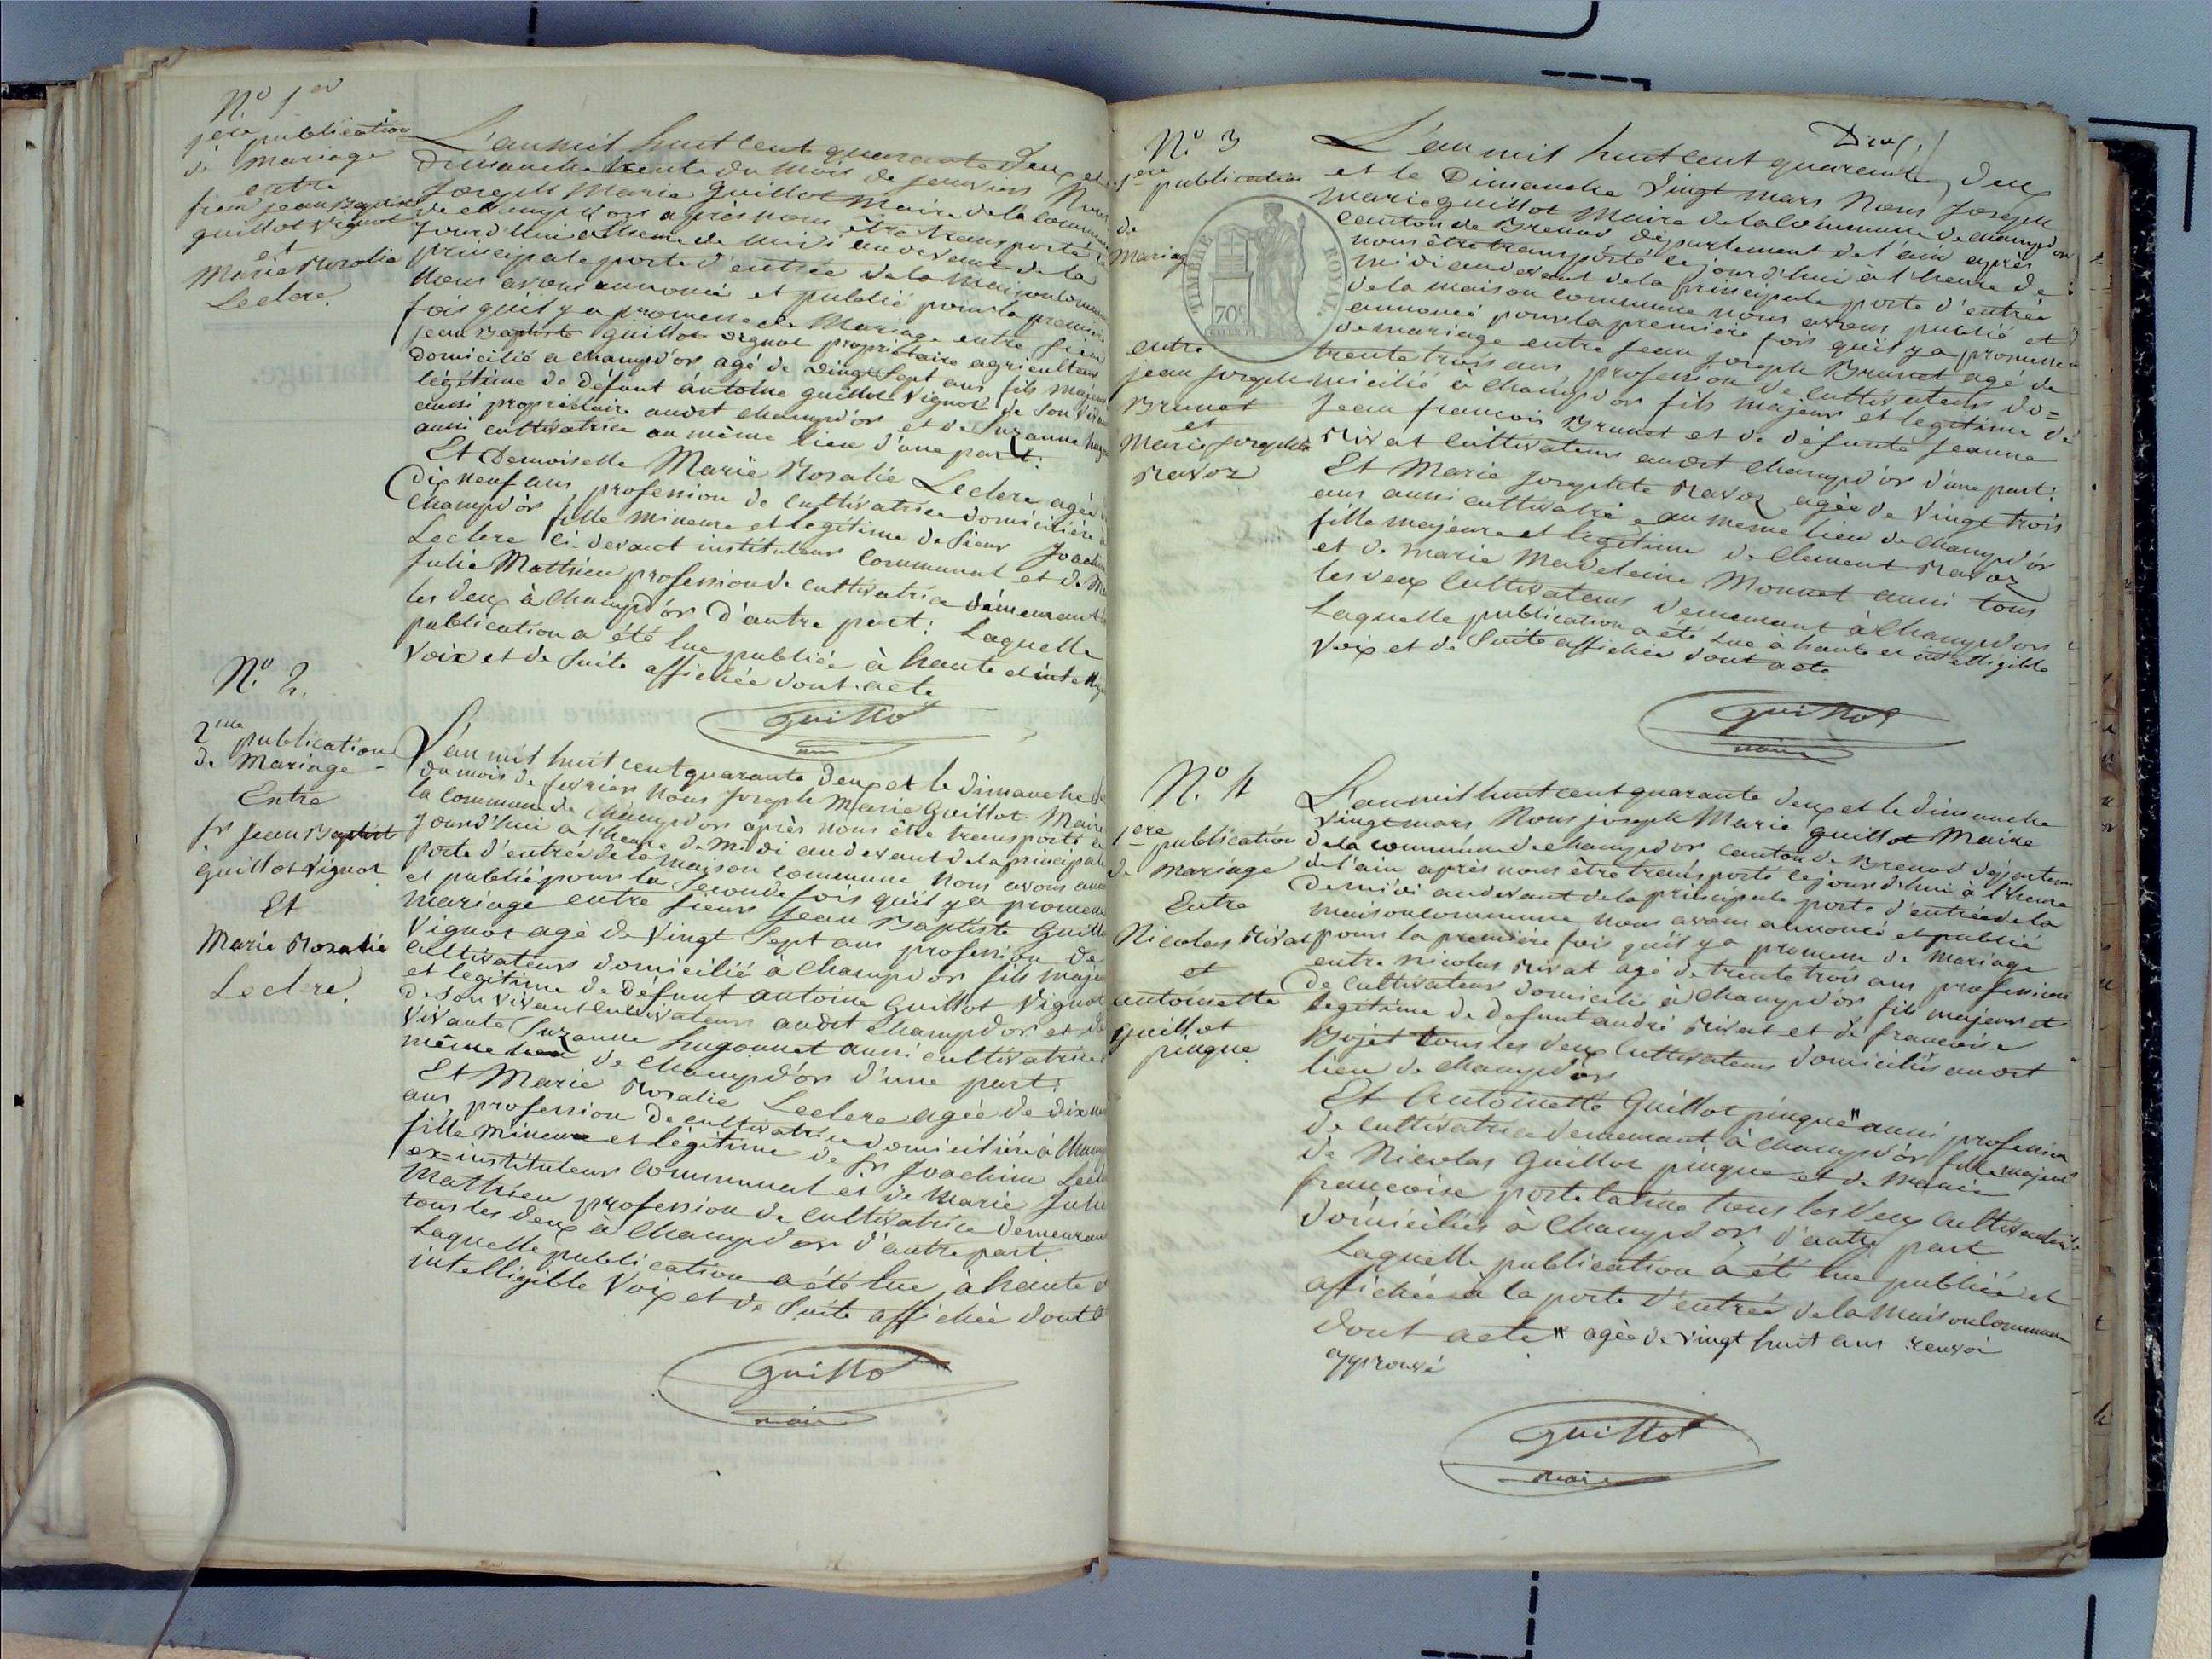 N.o 1er
1ere publication
de mariage
entre
sieur jean Baptiste
guillot Vignot
et
Marie Rosalie
Leclere.
L'an mil huit cent quarante deux et
dimanche trente du mois de janvier Nous
Joseph Marie Guillot Maire de la commune
de champd'or après nous être transporté
jourd'hui a l'heure de midi au devant de la
principale porte d'entrée de la maison commune
Nous avons annoncé et publié pour la première
fois qu'il y a promesse de Mariage entre sieur
jean Baptiste Guillot Vignot propriétaire agriculteur
domicilié a Champd'or agé de vingt sept ans fils majeur
légitime de défunt antoine guillot Vignot de son vivant
aussi propriétaire audit champd'or et de Suzanne
aussi cultivatrice au même lieu d'une part:
Et Demoiselle Marie Rosalie Leclere agée
Dix neuf ans profession de cultivatrice domiciliée
Champd'or fille mineure et legitime de sieur Joachim
Leclere ci-devant instituteur communal et de
Julie Mathieu profession de cultivatrice demeurant
les deux à Champd'or d'autre part: Laquelle
publication a été lue publiée à haute et
voix et de suite affichée dont acte
Guillot
maire
N.o 2.
2me publication
de Mariage
Entre
sr Jean Baptist
guillot Vignot
Et
Marie Rosalie
Leclere.
L'an mil huit cent quarante deux et le dimanche
du mois de fevrier Nous Joseph Marie Guillot Maire
la commune de Champd'or après nous être transporté
jourd'hui a l'heure de midi au devant de la principale
porte d'entrée de la maison commune Nous avons
et publié pour la seconde fois qu'il y a promesse
mariage entre sieur Jean Baptiste Guillot
Vignot agé de Vingt Sept ans profession de
cultivateur domicilié à Champd'or fils majeur
et legitime de défunt antoine Guillot Vignot
de son vivant cultivateur audit Champd'or et de
vivante Suzanne hugonnet aussi cultivatrice
même lieu de Champd'or d'une part:
Et Marie Rosalie Leclere agée de dix
ans profession de cultivatrice domiciliée à
fille mineure et légitime de sr Joachim
ex=instituteur communal et de Marie Julie
Mathieu profession de cultivatrice demeurant
tous les deux à Champd'or d'autre part.
Laquelle publication a été lue à haute
intelligible Voix et de Suite affichée dont
Guillot
maire
N.o 3
1ere publication
de
Mariage
entre
jean Joseph
Brunet
et
Marie Josephte
Ravoz
TIMBRE ROYAL
70c
L'an mil huit cent quarante deux
et le Dimanche Vingt mars Nous Joseph
marie guillot Maire de la Commune de champd'or
canton de Brenod département de l'ain après
nous être transporté ce jourd'hui à l'heure de
midi au devant de la principale porte d'entrée
de la maison commune nous avons publié et
annoncé pour la première fois qu'il y a promesse
de mariage entre Jean joseph Brunet agé de
trente trois ans profession de cultivateur do=
micilié à Champd'or fils majeur et legitime de
Jean françois Brunet et de défunte Jeanne
Rivat cultivateurs audit Champd'or d'une part:
Et Marie Josephte Ravoz agée de Vingt trois
ans aussi cultivatrice au meme lieu de Champd'or
fille majeure et legitime de Clement Ravoz
et de marie Madeleine Monnet aussi tous
les deux Cultivateurs demeurant à Champd'or
Laquelle publication a été lue à haute et intelligible
Voix et de Suite affichée dont acte
Guillot
maire
N.o 4
1ere publication
de mariage
Entre
Nicolas Rivat
et
antoinette
guillot
pingue
L'an mil huit cent quarante deux et le dimanche
Vingt mars Nous joseph Marie guillot Maire
de la commune de champd'or canton de Brenod departem
de l'ain après nous être transporté ce jourd'hui à l'heure
de midi au devant de la principale porte d'entrée de la
maison commune nous avons annoncé et publié
pour la première fois qu'il y a promesse de Mariage
entre Nicolas Rivat agé de trente trois ans profession
de cultivateur domicilié à Champd'or fils majeur et
legitime de defunt andré Rivat et de françoise
Bojet tous les deux cultivateurs domiciliés audit
lieu de Champd'or
Et Antoinette Guillot pingue" aussi profession
de cultivatrice demeurant à Champd'or fille majeure
de Nicolas Guillot pingue et de Marie
françoise portelatine tous les deux cultivateurs
domiciliés à Champd'or, d'autre part
Laquelle publication a été lue publiée et
affichée à la porte d'entrée de la maison commune
dont acte " agée de vingt huit ans renvoi
approuvé
Guillot
maire